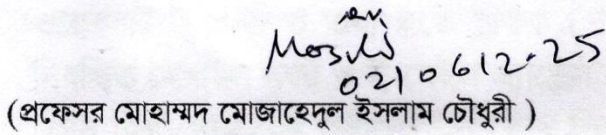 02।০৬।২-25
(প্রফেসর মোহাম্মদ মোজাহেদুল ইসলাম চৌধুরী )